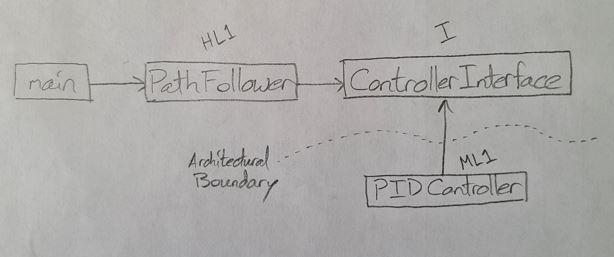 HL1
I
main
PathFollower
ControllerInterface
Architectural
Boundary
ML1
PIDController